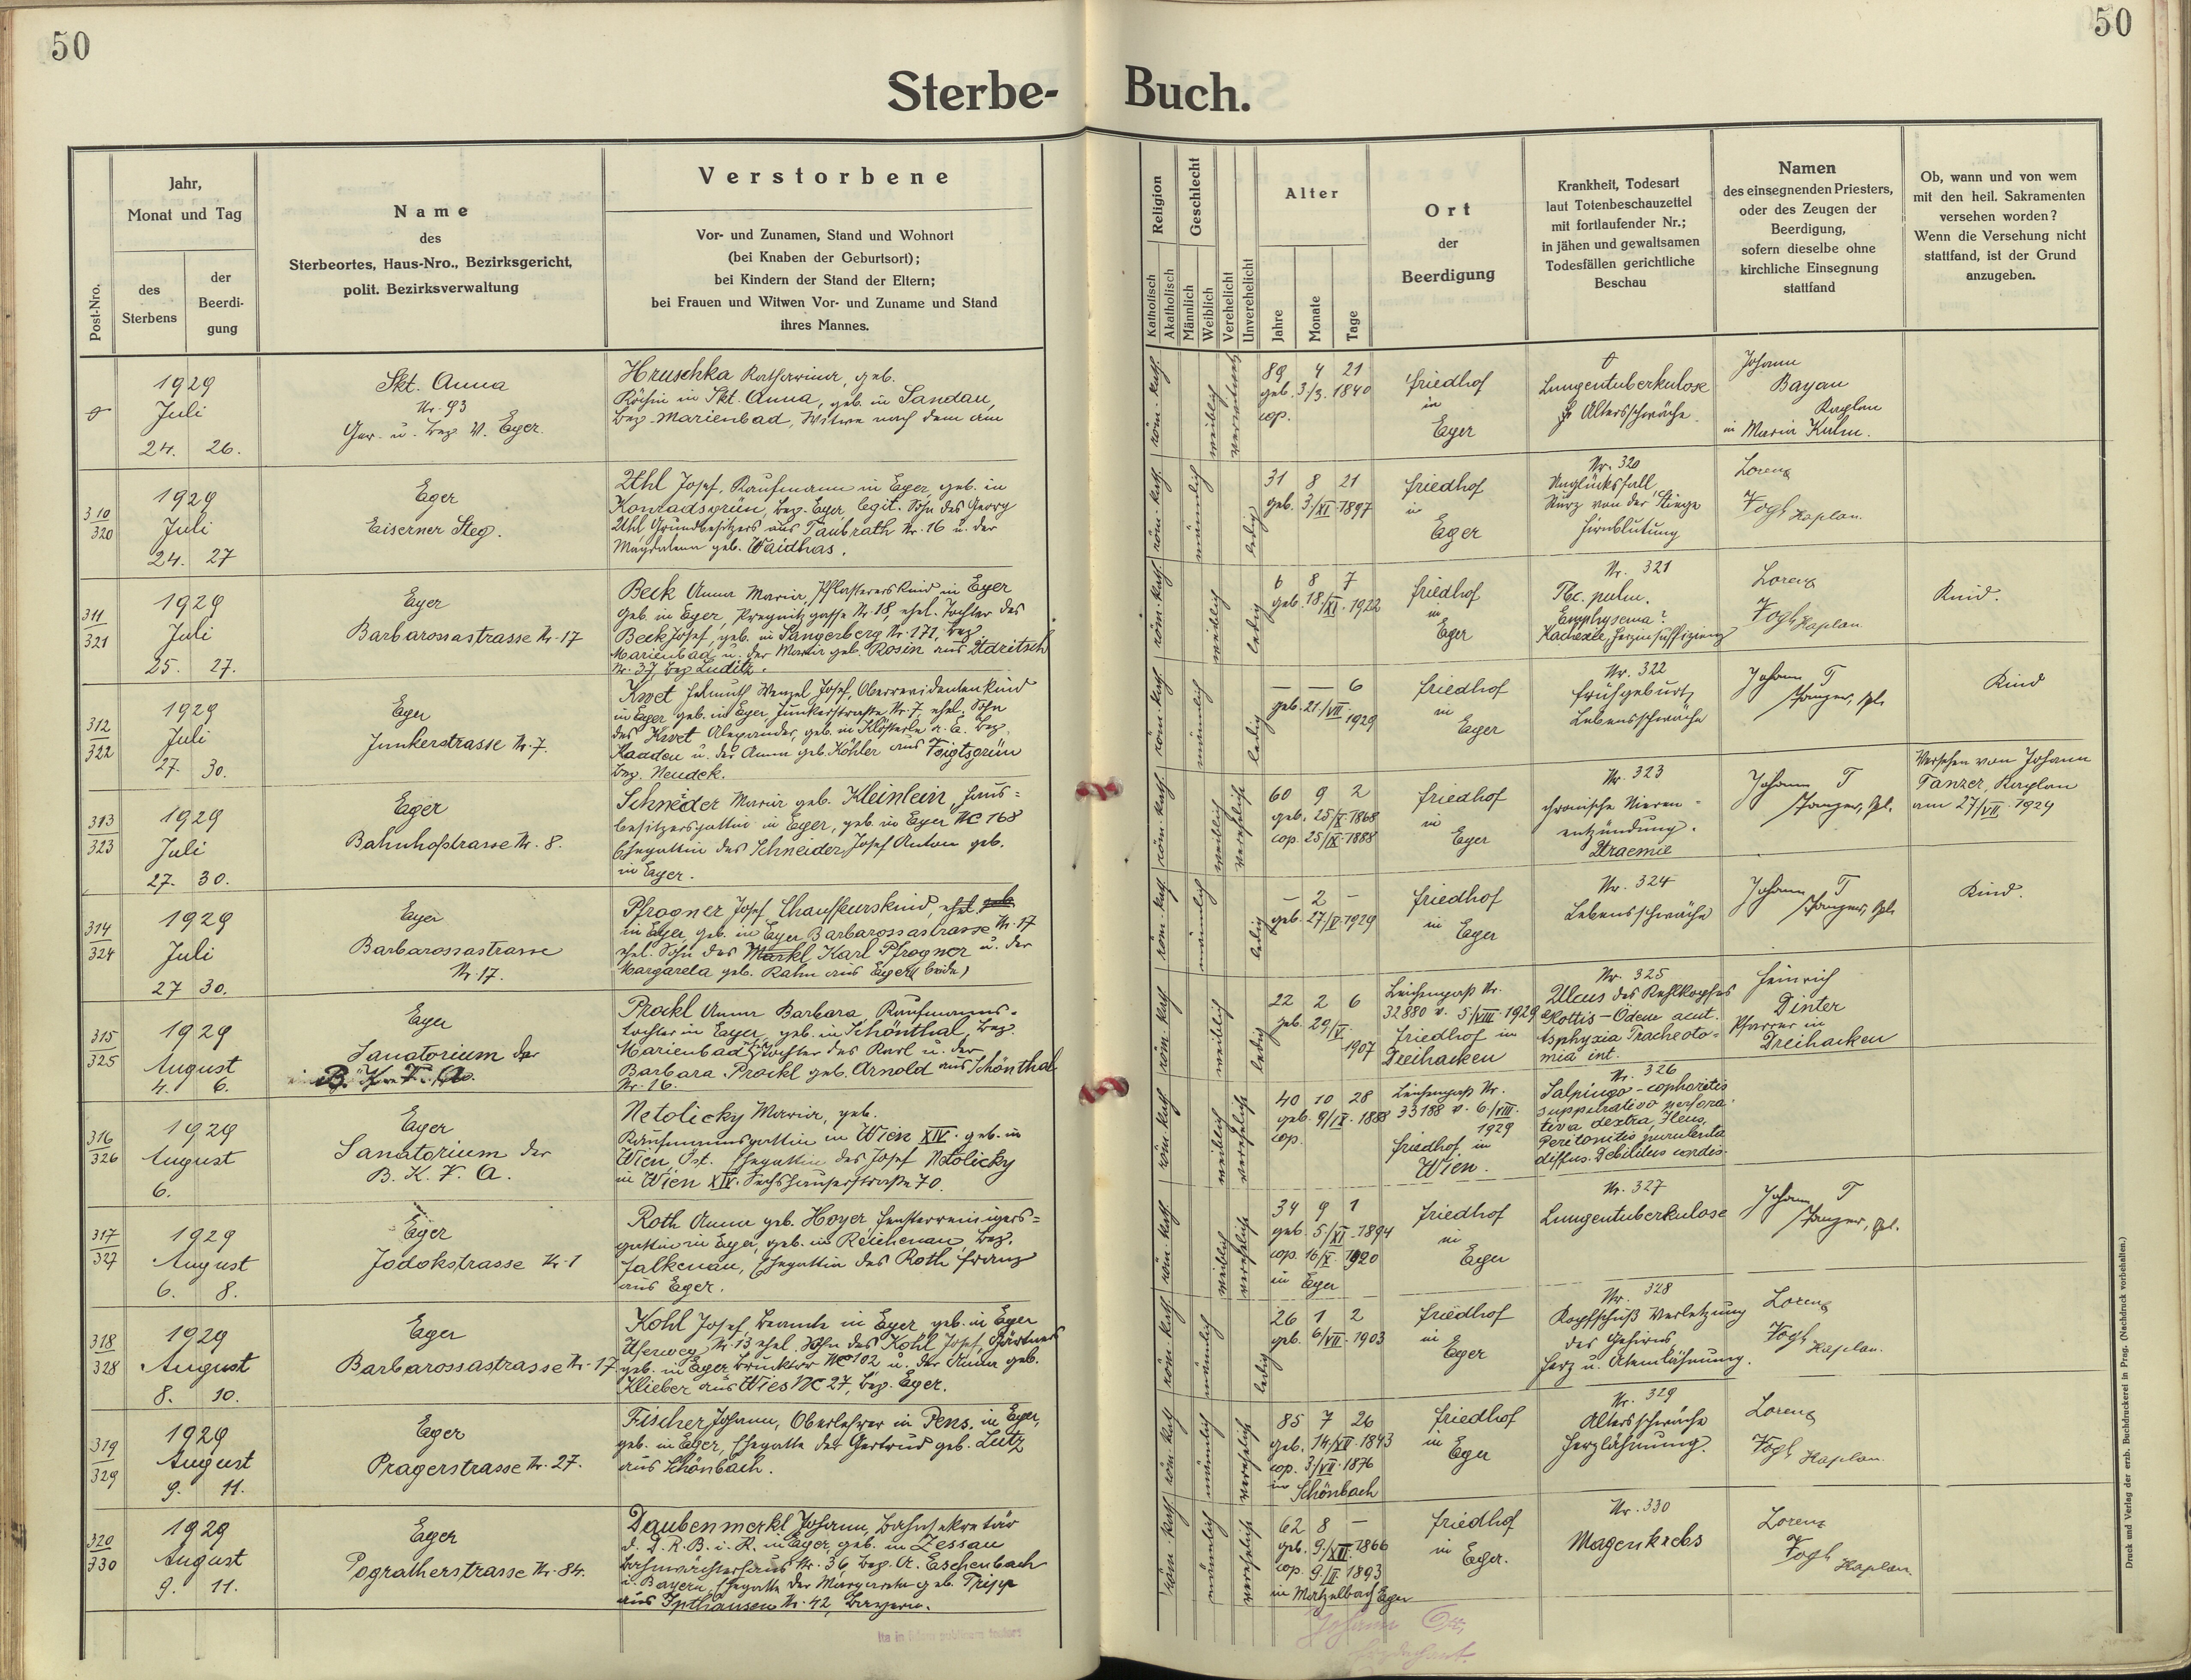 50
50
Sterbe-
Buch.
Post-Nro.
Jahr,
Monat und Tag
des
Sterbens
der
Beerdi-
gung
Name
des
Sterbeortes, Haus-Nro., Bezirksgericht,
polit. Bezirksverwaltung
Verstorbene
Vor- und Zunamen, Stand und Wohnort
(bei Knaben der Geburtsort);
bei Kindern der Stand der Eltern;
bei Frauen und Witwen Vor- und Zuname und Stand
ihres Mannes.
Religion
Katholisch
Akatholisch
Geschlecht
Männlich
Weiblich
Verehelicht
Unverehelicht
Alter
Jahre
Monate
Tage
Ort
der
Beerdigung
Krankheit, Todesart
laut Totenbeschauzettel
mit fortlaufender Nr.;
in jähen und gewaltsamen
Todesfällen gerichtliche
Beschau
Namen
des einsegnenden Priesters,
oder des Zeugen der
Beerdigung,
sofern dieselbe ohne
kirchliche Einsegnung
stattfand
Ob, wann und von wem
mit den heil. Sakramenten
versehen worden?
Wenn die Versehung nicht
stattfand, ist der Grund
anzugeben.
1929
Juli
24. 26.
Skt. Anna
Nr. 93
Ger. u. Bez. V. Eger.
Hruschka Katharina, geb.
Köchin in Skt. Anna, geb. in Sandau,
Bez. Marienbad, Witwe nach dem am
röm. kath.
weiblich
verwitwet
89 4 21
geb. 3/3. 1840
cop.
Friedhof
in
Eger
Lungentuberkulose
Altersschwäche
Johann
Bayan
Kaplan
in Maria Kulm.
310
320
1929
Juli
24. 27
Eger
Eiserner Steg.
Uhl Josef, Kaufmann in Eger, geb. in
Konradsgrün, Bez. Eger, legit. Sohn des Georg
Uhl Grundbesitzers aus Taubrath Nr. 16 u. der
Magdalena geb. Waidhas.
röm. kath.
männlich
ledig
31 8 21
geb. 3./XI. 1897
Friedhof
in
Eger
Nr. 320
Unglücksfall,
Sturz von der Stiege
Hirnblutung
Lorenz
Fogl Kaplan.
311
321
1929
Juli
25. 27.
Eger
Barbarossastrasse Nr. 17
Beck Anna Maria, Pflastererskind in Eger
geb. in Eger, Pregnitzgasse Nr. 18, ehel. Tochter des
Beck Josef, geb. in Sangerberg Nr. 171, Bez.
Marienbad u. der Maria geb. Rosin aus Udritsch
Nr. 37, Bez. Luditz.
röm. kath.
weiblich
ledig
6 8 7
geb. 18/XI. 1922
Friedhof
in
Eger
Nr. 321
Tbc. pulm.
Emphysema?
Kachexie, Herzinsuffizienz
Lorenz
Fogl Kaplan
Kind.
312
322
1929
Juli
27. 30.
Eger
Junkerstrasse Nr. 7.
Kwet Helmuth Wenzel Josef, Oberrevidentenkind
in Eger geb. in Eger Junkerstraße Nr. 7, ehel. Sohn
des Kwet Alexander, geb. in Klösterle a. E. Bez.
Kaaden u. der Anna geb. Köhler aus Voigtsgrün
Bez. Neudek.
röm. kath.
männlich
ledig
— — 6
geb. 21./VII.
1929
Friedhof
in
Eger
Nr. 322
Frühgeburt,
Lebensschwäche
Johann T
Tanzer, Kpl.
Kind
313
323
1929
Juli
27. 30.
Eger
Bahnhofstrasse Nr. 8.
Schneider Maria geb. Kleinlein, Haus-
besitzersgattin in Eger, geb. in Eger NC 168
Ehegattin des Schneider Josef Anton geb.
in Eger.
röm. kath.
weiblich
verehelicht
60 9 2
geb. 25/X. 1868
cop. 25/IX. 1888
Friedhof
in
Eger
Nr. 323
chronische Nieren-
entzündung.
Uraemie
Johann T
Tanzer, Kpl.
Versehen von Johann
Tanzer, Kaplan
am 27/VII. 1929
314
324
1929
Juli
27 30.
Eger
Barbarossastrasse
Nr. 17.
Pfrogner Josef Chauffeurskind, ehel. geb.
in Eger, geb. in Eger Barbarossastrasse Nr. 17
ehel. Sohn des Markl Karl Pfrogner u. der
Margareta geb. Rahm aus Eger (beide)
röm. kath.
männlich
ledig
— 2 —
geb. 27/V. 1929
Friedhof
in Eger
Nr. 324
Lebensschwäche
Johann T
Tanzer, Kpl.
Kind.
315
325
1929
August
4. 6.
Eger
Sanatorium der
B. K. F. A.
Prockl Anna Barbara, Kaufmanns-
tochter in Eger, geb. in Schönthal, Bez.
Marienbad, Tochter des Karl u. der
Barbara Prockl geb. Arnold aus Schönthal
Nr. 16.
röm. kath.
weiblich
ledig
22 2 6
geb. 29/V.
1907
Leichenpaß Nr.
32880 v. 5/VIII. 1929
Friedhof in
Dreihacken
Nr. 325
Ulcus des Kehlkopfes
Glottis-Ödem acut.
Asphyxia Tracheoto-
mia int.
Heinrich
Dinter
Pfarrer in
Dreihacken
316
326
1929
August
6.
Eger
Sanatorium der
B. K. F. A.
Netolicky Maria, geb.
Kaufmannsgattin in Wien XIV. geb. in
Wien, Öst. Ehegattin des Josef Netolicky
in Wien XIV. Sechshauserstraße 70.
röm. kath.
weiblich
verehelicht
40 10 28
geb. 9/IX. 1888
cop.
Leichenpaß Nr.
33188 v. 6/VIII.
1929
Friedhof in
Wien.
Nr. 326
Salpingo-oophoritis
suppurativo perfora-
tiva dextra, Ileus,
Peritonitis purulenta
diffus. Debilitus cordis.
317
327
1929
August
6. 8.
Eger
Jodokstrasse Nr. 1
Roth Anna geb. Hoyer, Fensterreinigers-
gattin in Eger, geb. in Reichenau Bez.
Falkenau, Ehegattin des Roth Franz
aus Eger.
röm. kath.
weiblich
verehelicht
34 9 1
geb. 5/XI. 1894
cop. 16/X. 1920
in Eger
Friedhof
in
Eger
Nr. 327
Lungentuberkulose
Johann T
Tanzer, Kpl.
318
328
1929
August
8. 10.
Eger
Barbarossastrasse Nr. 17
Kohl Josef, Beamte in Eger geb. in Eger
Uferweg Nr. 13 ehel. Sohn des Kohl Josef, Gärtners
geb. in Eger Brucktor NC 102 u. der Anna geb.
Klieber aus Wies NC 27, Bez. Eger.
röm. kath.
männlich
ledig
26 1 2
geb. 6/VII. 1903
Friedhof
in
Eger
Nr. 328
Kopfschuß Verletzung
des Gehirns,
Herz u. Atemlähmung.
Lorenz
Fogl
Kaplan.
319
329
1929
August
9. 11.
Eger
Pragerstrasse Nr. 27.
Fischer Johann, Oberlehrer in Pens. in Eger,
geb. in Eger, Ehegatte der Gertrud geb. Lutz
aus Schönbach.
röm. kath.
männlich
verehelicht
85 7 26
geb. 14/XII. 1843
cop. 3/VII. 1876
in Schönbach
Friedhof
in Eger
Nr. 329
Altersschwäche
Herzlähmung.
Lorenz
Fogl Kaplan.
320
330
1929
August
9. 11.
Eger
Pogratherstrasse Nr. 84.
Daubenmerkl Johann, Bahnsekretär
d. D. R. B. i. R. in Eger, geb. in Zessau
Bahnwärterhaus Nr. 36 Bez. A. Eschenbach
i. Bayern, Ehegatte der Margareta geb. Tripp
aus Ipthausen Nr. 42, Bayern.
röm. kath.
männlich
verehelicht
62 8 —
geb. 9./XII. 1866
cop. 9./II. 1893
in Matzelbach Eger
Friedhof
in Eger.
Nr. 330
Magenkrebs
Lorenz
Fogl
Kaplan.
Johann
Druck und Verlag der erzb. Buchdruckerei in Prag. (Nachdruck vorbehalten.)